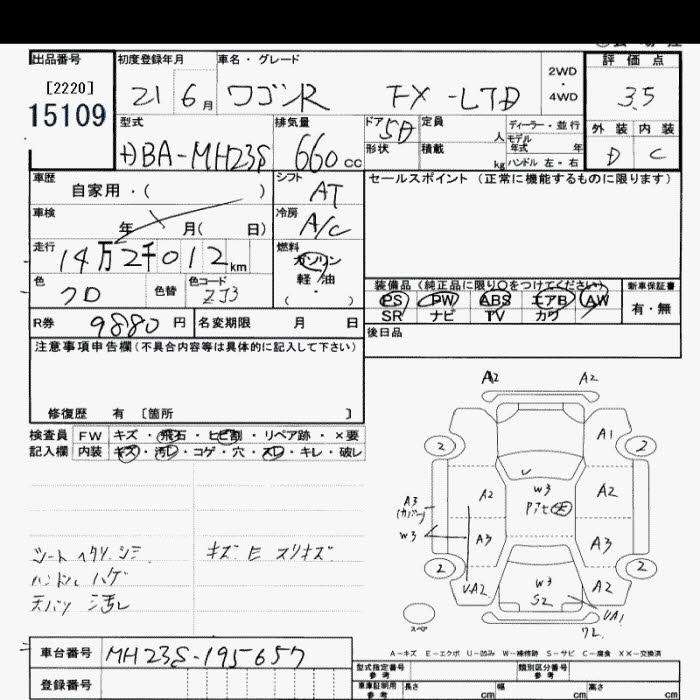 出品番号 初度登録年月 車名・グレード 評価点
[2220] 2WD
15109 21 6月 ワゴンR FX-LTD ・ 3.5
4WD
型式 排気量 ドア 5D 定員 人 ディーラー・並行 外装 内装
モデル
年式 年
DBA-MH23S 660cc 形状 積載 kg ハンドル 左・右 D C
車歴 シフト セールスポイント (正常に機能するものに限ります)
自家用・( ) AT
車検 冷房
年 月( 日) A/C
走行 燃料
14万2千012km ガソリン
軽油
色 色替 色コード ( ・ ) 装備品(純正品に限り○をつけてください) 新車保証書
ZJ3 PS PW ABS エアB AW 有・無
SR ナビ TV カワ
R券 9880円 名変期限 月 日 後日品
注意事項申告欄(不具合内容等は具体的に記入して下さい)
修復歴 有 [箇所 ]
検査員 FW キズ・飛石・ヒビ割・リペア跡・×要
記入欄 内装 キズ・汚レ・コゲ・穴・スレ・キレ・破レ
A2 A2
A1
2 2
A2 W3 A2
A3
W3 A3 A3
シートヘタリ シミ キズ E スリキズ
ハンドルハゲ
2 2
天バリ汚レ UA2 W3 A2
S2 UA1
スペア
A-キズ E-エクボ U-凹み W-補修跡 S-サビ C-腐食 XX-交換済
車台番号 MH23S-195657
型式指定番号 類別区分番号
参考 参考
登録番号 車庫証明用 長さ cm 幅 cm 高さ cm
参考